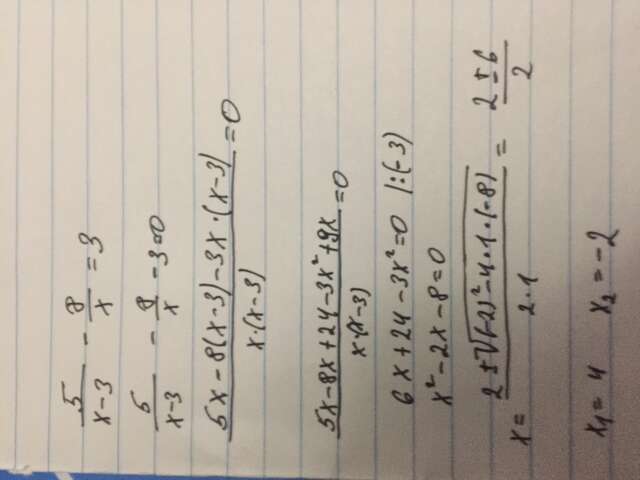 5/(x-3) - 8/x = 3
5/(x-3) - 8/x - 3=0
(5x-8(x-3)-3x·(x-3))/(x·(x-3)) = 0
(5x-8x+24-3x²+9x)/(x·(x-3)) = 0
6x+24-3x²=0 |:(-3)
x²-2x-8=0
x = (2±√((-2)²-4·1·(-8)))/(2·1) = (2±6)/2
x₁=4 x₂=-2